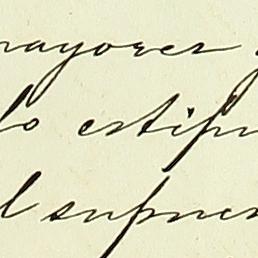 mayores
lo estipu
l supre